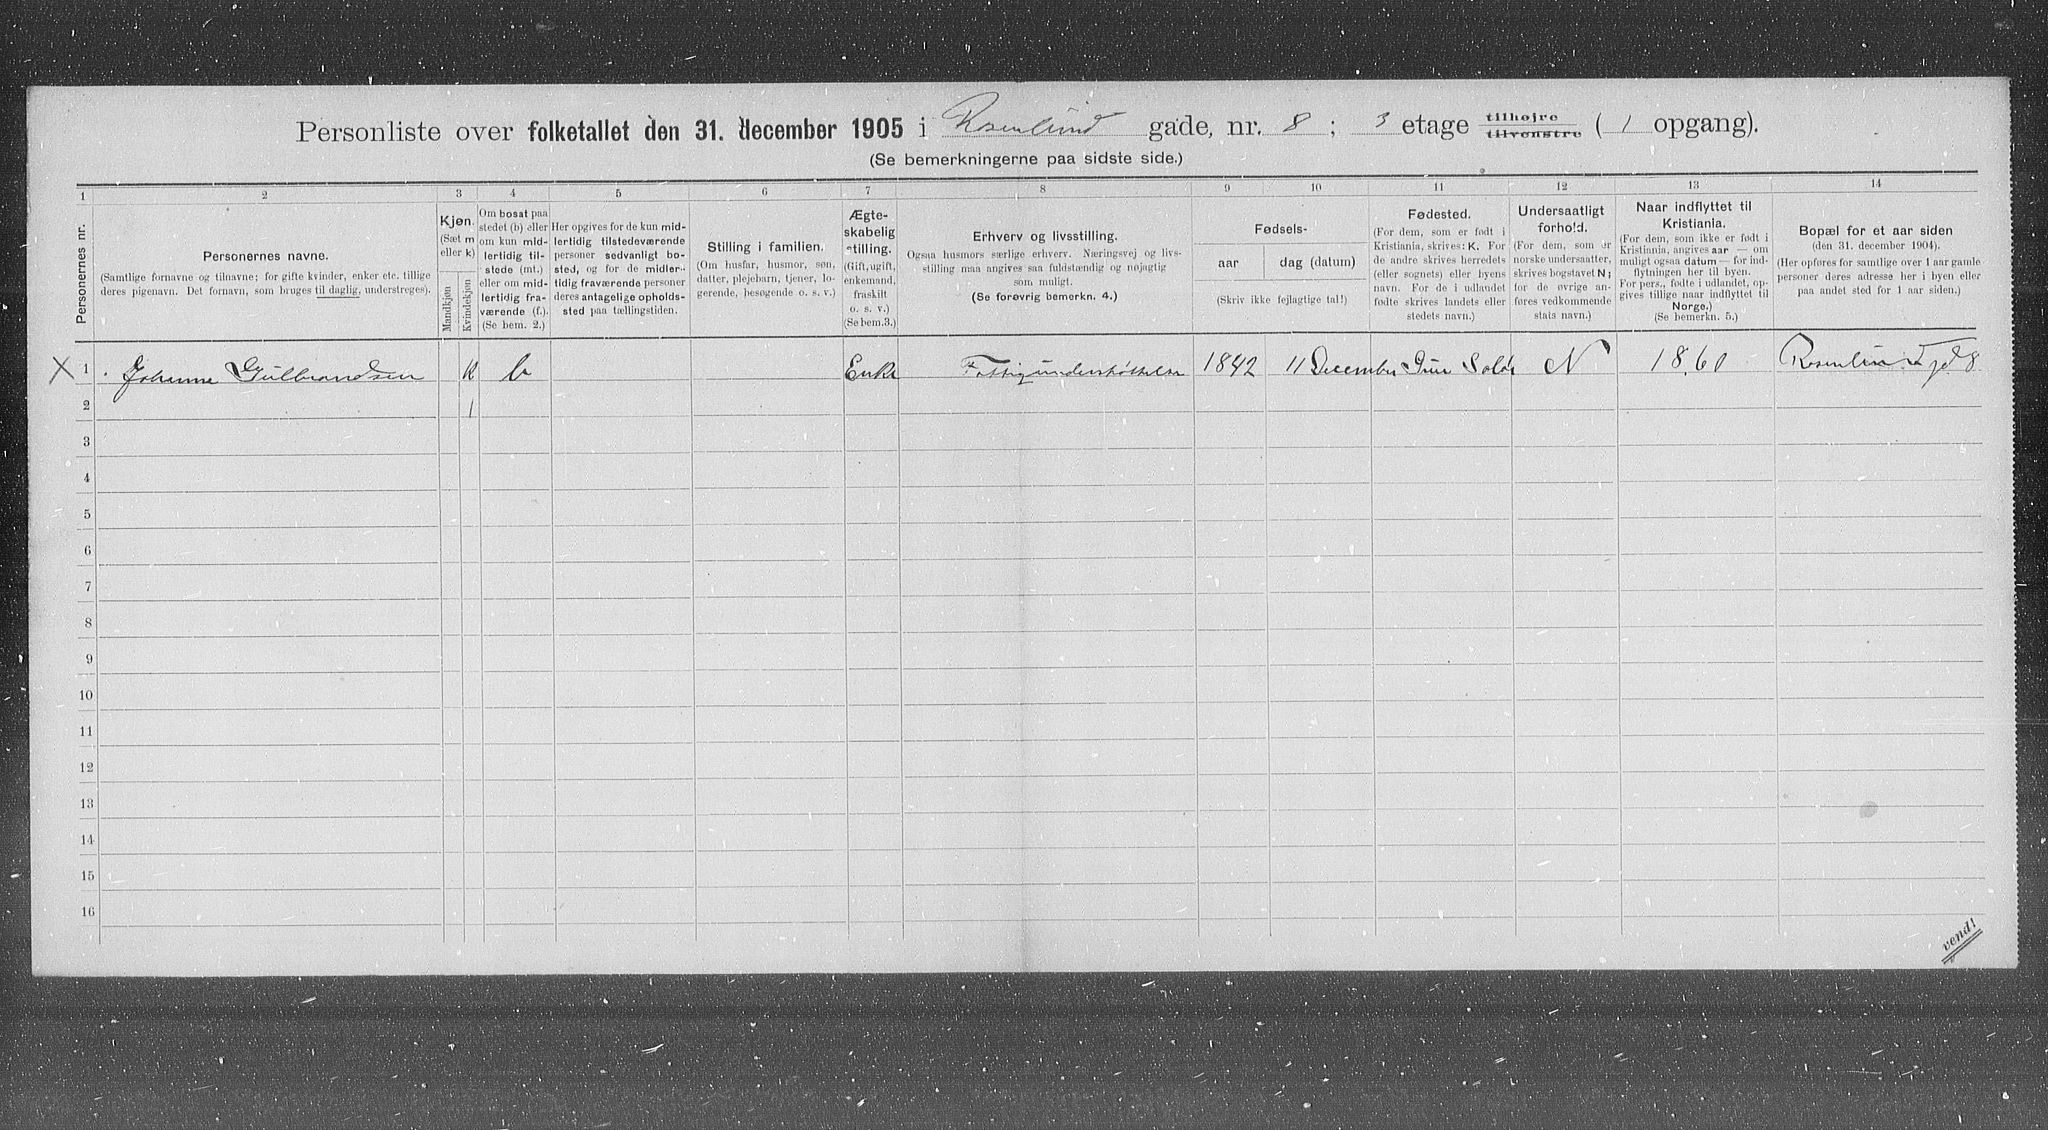 Personliste over folketallet den 31. december 1905 i Rosenlund gade, nr. 8 ; 3 etage tilhøjre tilvenstre ( 1 opgang).
(Se bemerkningerne paa sidste side.)
1 2 3 4 5 6 7 8 9 10 11 12 13 14
Personernes nr.
Personernes navne.
(Samtlige fornavne og tilnavne; for gifte kvinder, enker etc. tillige
deres pigenavn. Det fornavn, som bruges til daglig, understreges).
Kjøn.
(Sæt m
eller k)
Mandkjøn
Kvindekjøn
Om bosat paa
stedet (b) eller
om kun mid-
lertidig til-
stede (mt.)
eller om mid-
lertidig fra-
værende (f.).
(Se bem. 2.)
Her opgives for de kun mid-
lertidig tilstedeværende
personer sedvanligt bo-
sted, og for de midler-
tidig fraværende personer
deres antagelige opholds-
sted paa tællingstiden.
Stilling i familien.
(Om husfar, husmor, søn,
datter, plejebarn, tjener, lo-
gerende, besøgende o. s. v.)
Ægte-
skabelig
stilling.
(Gift, ugift,
enkemand,
fraskilt
o. s. v.)
(Se bem.3.)
Erhverv og livsstilling.
Ogsaa husmors særlige erhverv. Næringsvej og livs-
stilling maa angives saa fuldstændig og nøjagtig
som muligt.
(Se forøvrig bemerkn. 4.)
Fødsels-
aar
dag (datum)
(Skriv ikke fejlagtige tal!)
Fødested.
(For dem, som er født i
Kristiania, skrives: K. For
de andre skrives herredets
(eller sognets) eller byens
navn. For de i udlandet
fødte skrives landets eller
stedets navn.)
Undersaatligt
forhold.
(For dem, som er
norske undersaatter,
skrives bogstavet N;
for de øvrige an-
føres vedkommende
stats navn.)
Naar indflyttet til
Kristiania.
(For dem, som ikke er født i
Kristinnia, angives aar — om
muligt ogsaa datum — for ind-
flytningen her til byen.
For pers., fødte i udlandet, op-
gives tillige naar indflyttet til
Norge.)
(Se bemerkn. 5.)
Bopæl for et aar siden
(den 31. december 1904).
(Her opføres for samtlige over 1 aar gamle
personer deres adresse her i byen eller
paa andet sted for 1 aar siden.)
X 1 Johanne Gulbrandsen k b Enke Fattigunderstøttelse 1842 11 December N 1860 Rosenlund gd 8
2 1
3
4
5
6
7
8
9
10
11
12
13
14
15
16
vend!